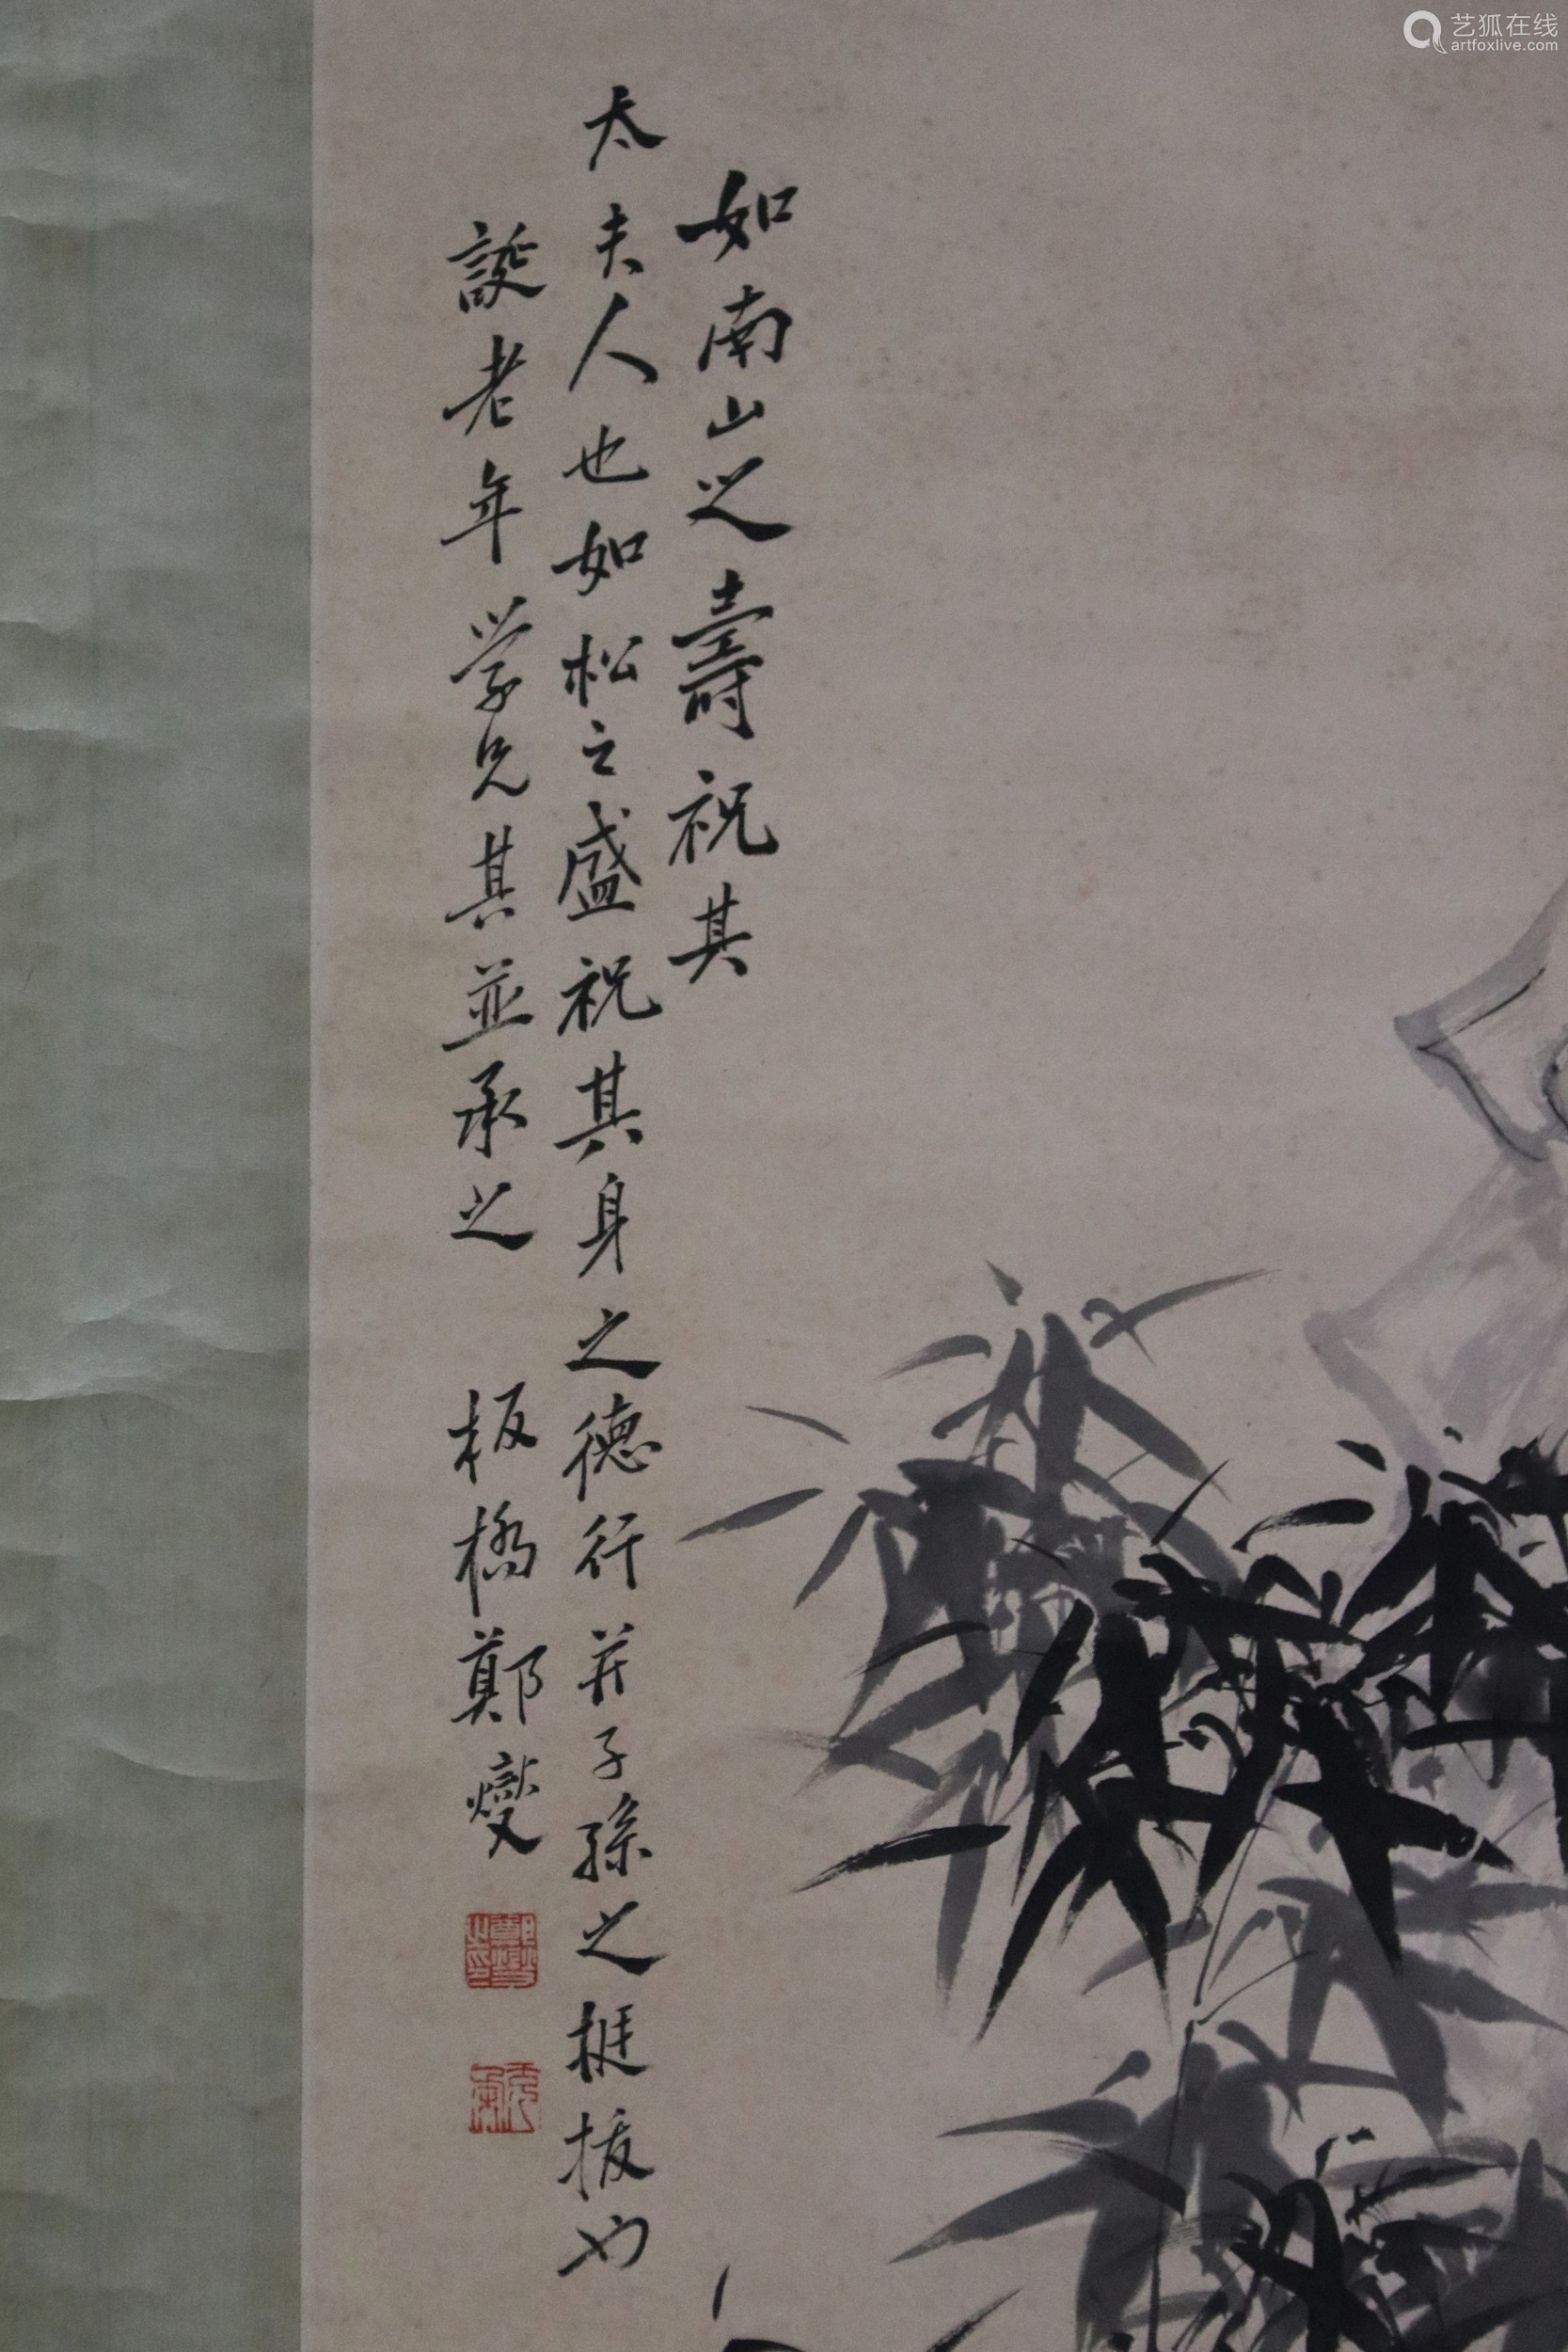 艺狐在线
artfoxlive.com
如南山之壽祝其
太夫人也如松之盛祝其身之德行莊子孫之挺拔也
誕老年学兄其並承之 板橋鄭燮
鄭燮之印